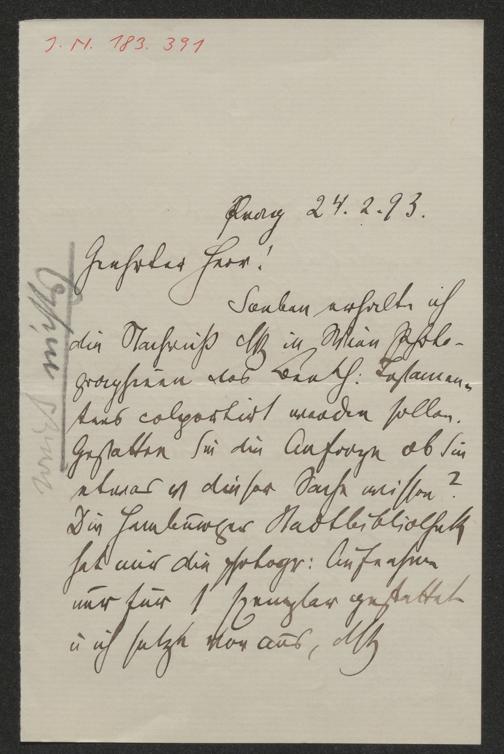 J. N. 183. 391
Prag 24. 2. 93.
Geehrter Herr!
Soeben erhalte ich
die Nachricht daß in Wien Photo-
graphieen des Beeth: Testamen-
tens colportirt werden sollen.
Gestatten Sie die Anfrage ob Sie
etwas v dieser Sache wissen?
Die Hamburger Stadtbibliothek
hat mir die photogr: Aufnahme
nur für 1 Exemplar gestattet
u ich setzte voraus, daß